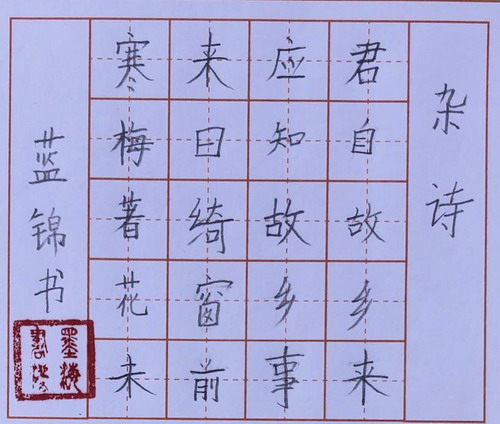 杂诗
君自故乡来
应知故乡事
来日绮窗前
寒梅著花未
蓝锦书
墨海